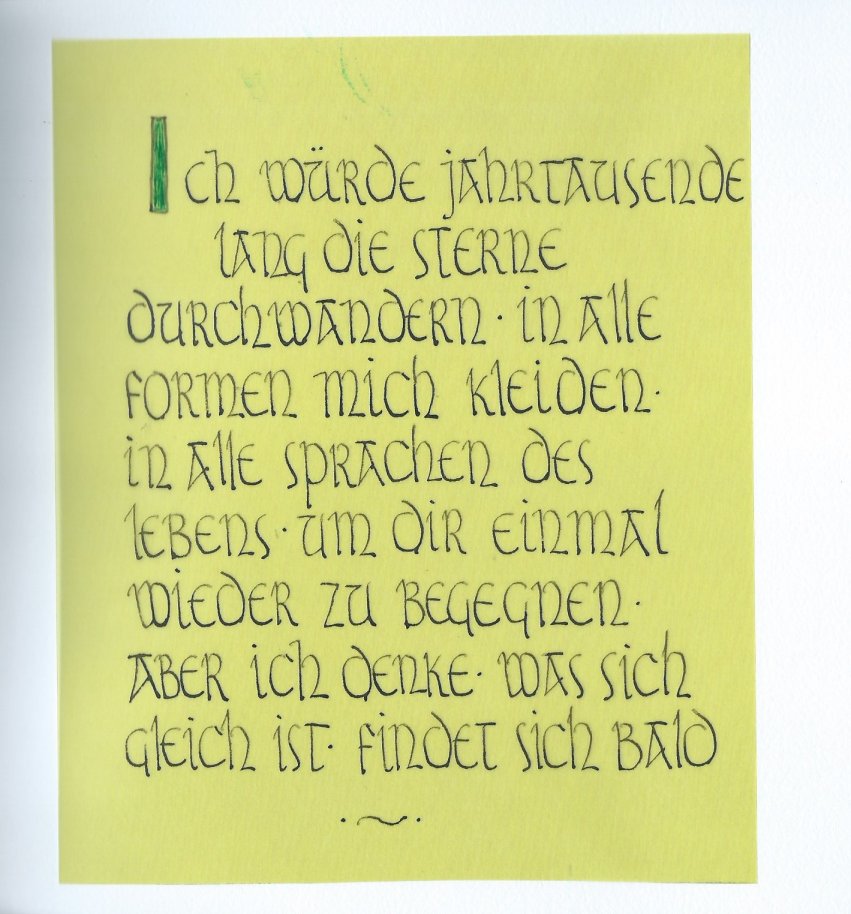 Ich würde jahrtausende
lang die sterne
durchwandern · in alle
formen mich kleiden ·
in alle sprachen des
lebens · um dir einmal
wieder zu begegnen ·
aber ich denke · was sich
gleich ist · findet sich bald